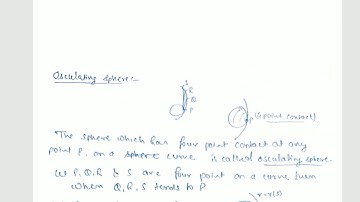 Osculating sphere:-
S
R
Q
P
P (4 point contact)
The sphere which has four point contact at any
point P. on a sphere curve is called osculating sphere.
Let P, Q, R & S are four point on a curve
when Q, R, S tends to P
r=r(s)